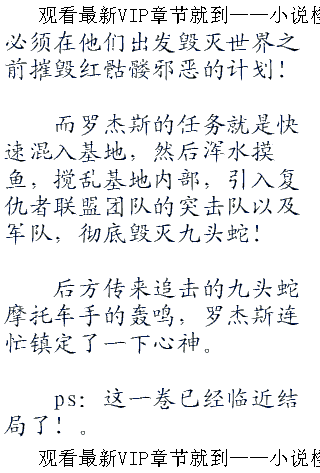 观看最新VIP章节就到——小说
必须在他们出发毁灭世界之
前摧毁红骷髅邪恶的计划！
而罗杰斯的任务就是快
速混入基地，然后浑水摸
鱼，搅乱基地内部，引入复
仇者联盟团队的突击队以及
军队，彻底毁灭九头蛇！
后方传来追击的九头蛇
摩托车手的轰鸣，罗杰斯连
忙镇定了一下心神。
ps：这一卷已经临近结
局了！。
观看最新VIP章节就到——小说